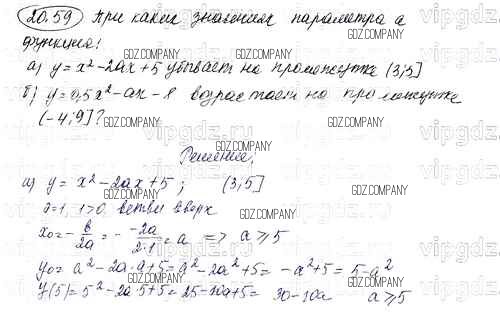 20.59 При каких значениях параметра а
функция:
а) y = x² - 2ax + 5 убывает на промежутке (3; 5]
б) y = 0,5x² - ax - 8 возрастает на промежутке
(-4; 9]?
Решение:
а) y = x² - 2ax + 5; (3; 5]
a=1, 1>0, ветви вверх
x₀ = - b/2a = - -2a/2·1 = a => a ≥ 5
y₀ = a² - 2a·a + 5 = a² - 2a² + 5 = -a² + 5 = 5 - a²
y(5) = 5² - 2a·5 + 5 = 25 - 10a + 5 = 30 - 10a a ≥ 5
GDZ.COMPANY
vipgdz.ru